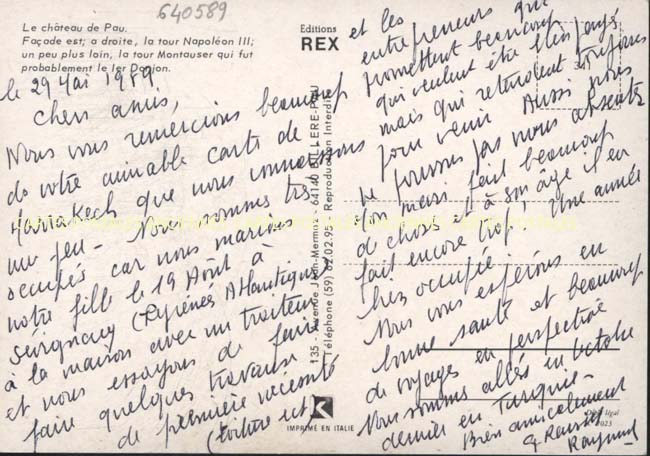 640589
Le château de Pau.
Façade est; a droite, la tour Napoléon III;
un peu plus loin, la tour Montauser qui fut
probablement le 1er Donjon.
Editions
REX
le 29 Mai 1989
Chers amis,
Nous vous remercions beaucoup
de votre aimable carte de
Marrakech que nous connaissons
un peu - Nous sommes très
occupés car nous marions
notre fille le 19 Août à
Sévignacq (Pyrénées Atlantiques)
à la maison avec un traiteur
et nous essayons de faire
faire quelques travaux
de première nécessité
(toiture et)
135 - Avenue Jean-Mermoz - 64140 BILLERE-PAU
Téléphone (59) 62.02.95 - Reproduction Interdite
IMPRIMÉ EN ITALIE
et les
entrepreneurs qui
promettent beaucoup
qui veulent être bien payés
mais qui retardent toujours
pour venir Aussi nous
ne pouvons pas nous absenter
Mon mari fait beaucoup
de choses et à son âge il en
fait encore trop, Une année
bien occupée
Nous vous espérons en
bonne santé et beaucoup
de voyages en perspective
Nous sommes allés en octobre
dernier en Turquie -
Bien amicalement
Dépôt légal
2023